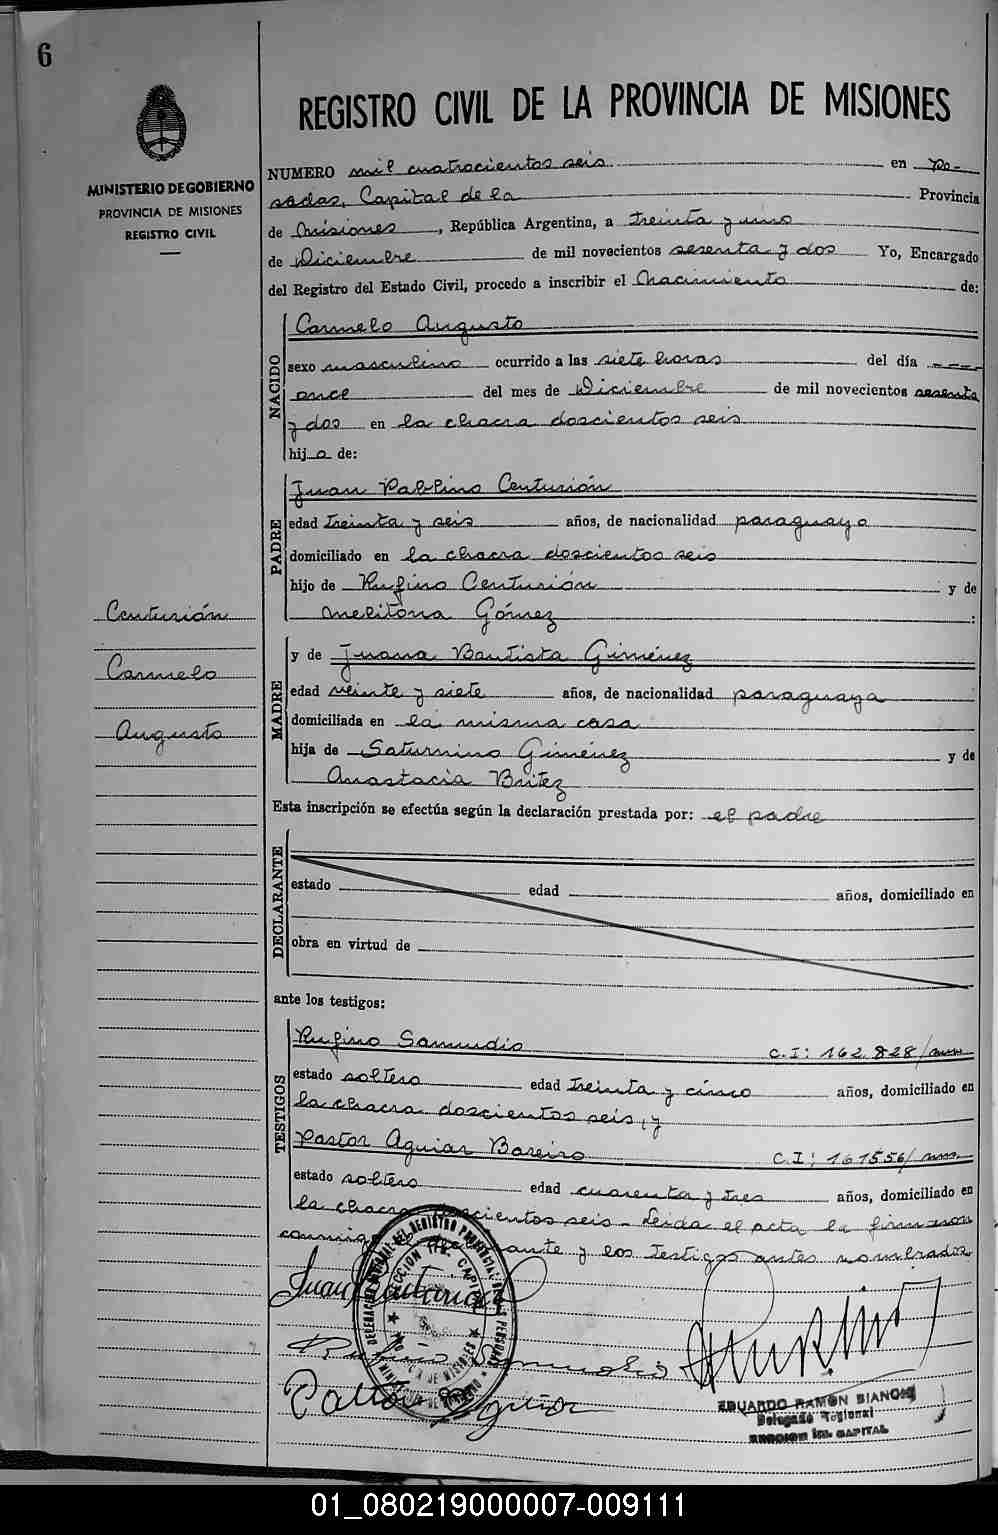 6
REGISTRO CIVIL DE LA PROVINCIA DE MISIONES
MINISTERIO DE GOBIERNO
PROVINCIA DE MISIONES
REGISTRO CIVIL
NUMERO mil cuatrocientos seis en Po-
sadas, Capital de la Provincia
de Misiones, República Argentina, a treinta y uno
de Diciembre de mil novecientos sesenta y dos Yo, Encargado
del Registro del Estado Civil, procedo a inscribir el Nacimiento de:
NACIDO
Carmelo Augusto
sexo masculino ocurrido a las siete horas del día
once del mes de Diciembre de mil novecientos sesenta
y dos en la chacra doscientos seis
hijo de:
PADRE
Juan Pablino Centurión
edad treinta y seis años, de nacionalidad paraguayo
domiciliado en la chacra doscientos seis
hijo de Rufino Centurión y de
Melitona Gómez :
Centurión
Carmelo
Augusto
MADRE
y de Juana Bautista Giménez
edad veinte y siete años, de nacionalidad paraguaya
domiciliada en la misma casa
hija de Saturnino Giménez y de
Anastacia Britez
Esta inscripción se efectúa según la declaración prestada por: el padre
DECLARANTE
estado edad años, domiciliado en
obra en virtud de
ante los testigos:
TESTIGOS
Rufino Samudio C.I: 162.828/
estado soltero edad treinta y cinco años, domiciliado en
la chacra doscientos seis, y
Pastor Aguiar Bareiro C.I: 161556/
estado soltero edad cuarenta y tres años, domiciliado en
la chacra doscientos seis - Leida el acta la firmaron
conmigo el y los testigos antes nombrados
Juan Centurion
Rufino Samudio
Pastor Aguiar
EDUARDO RAMON BIANCHI
Delegado Regional
SECCION 1RA. CAPITAL
01_080219000007-009111